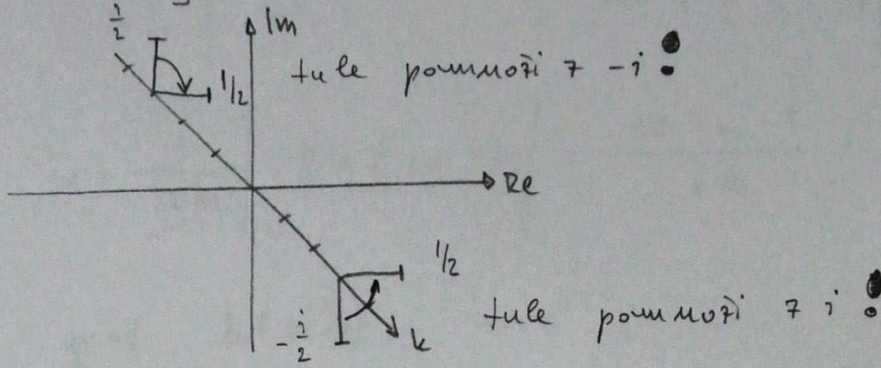 i/2
Im
1/2 tule pomnoži z -i !
Re
1/2
-i/2
k
tule pomnoži z i !